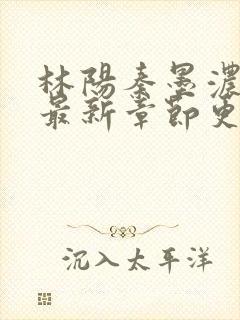 林陽秦墨濃
最新章節更
沉入太平洋